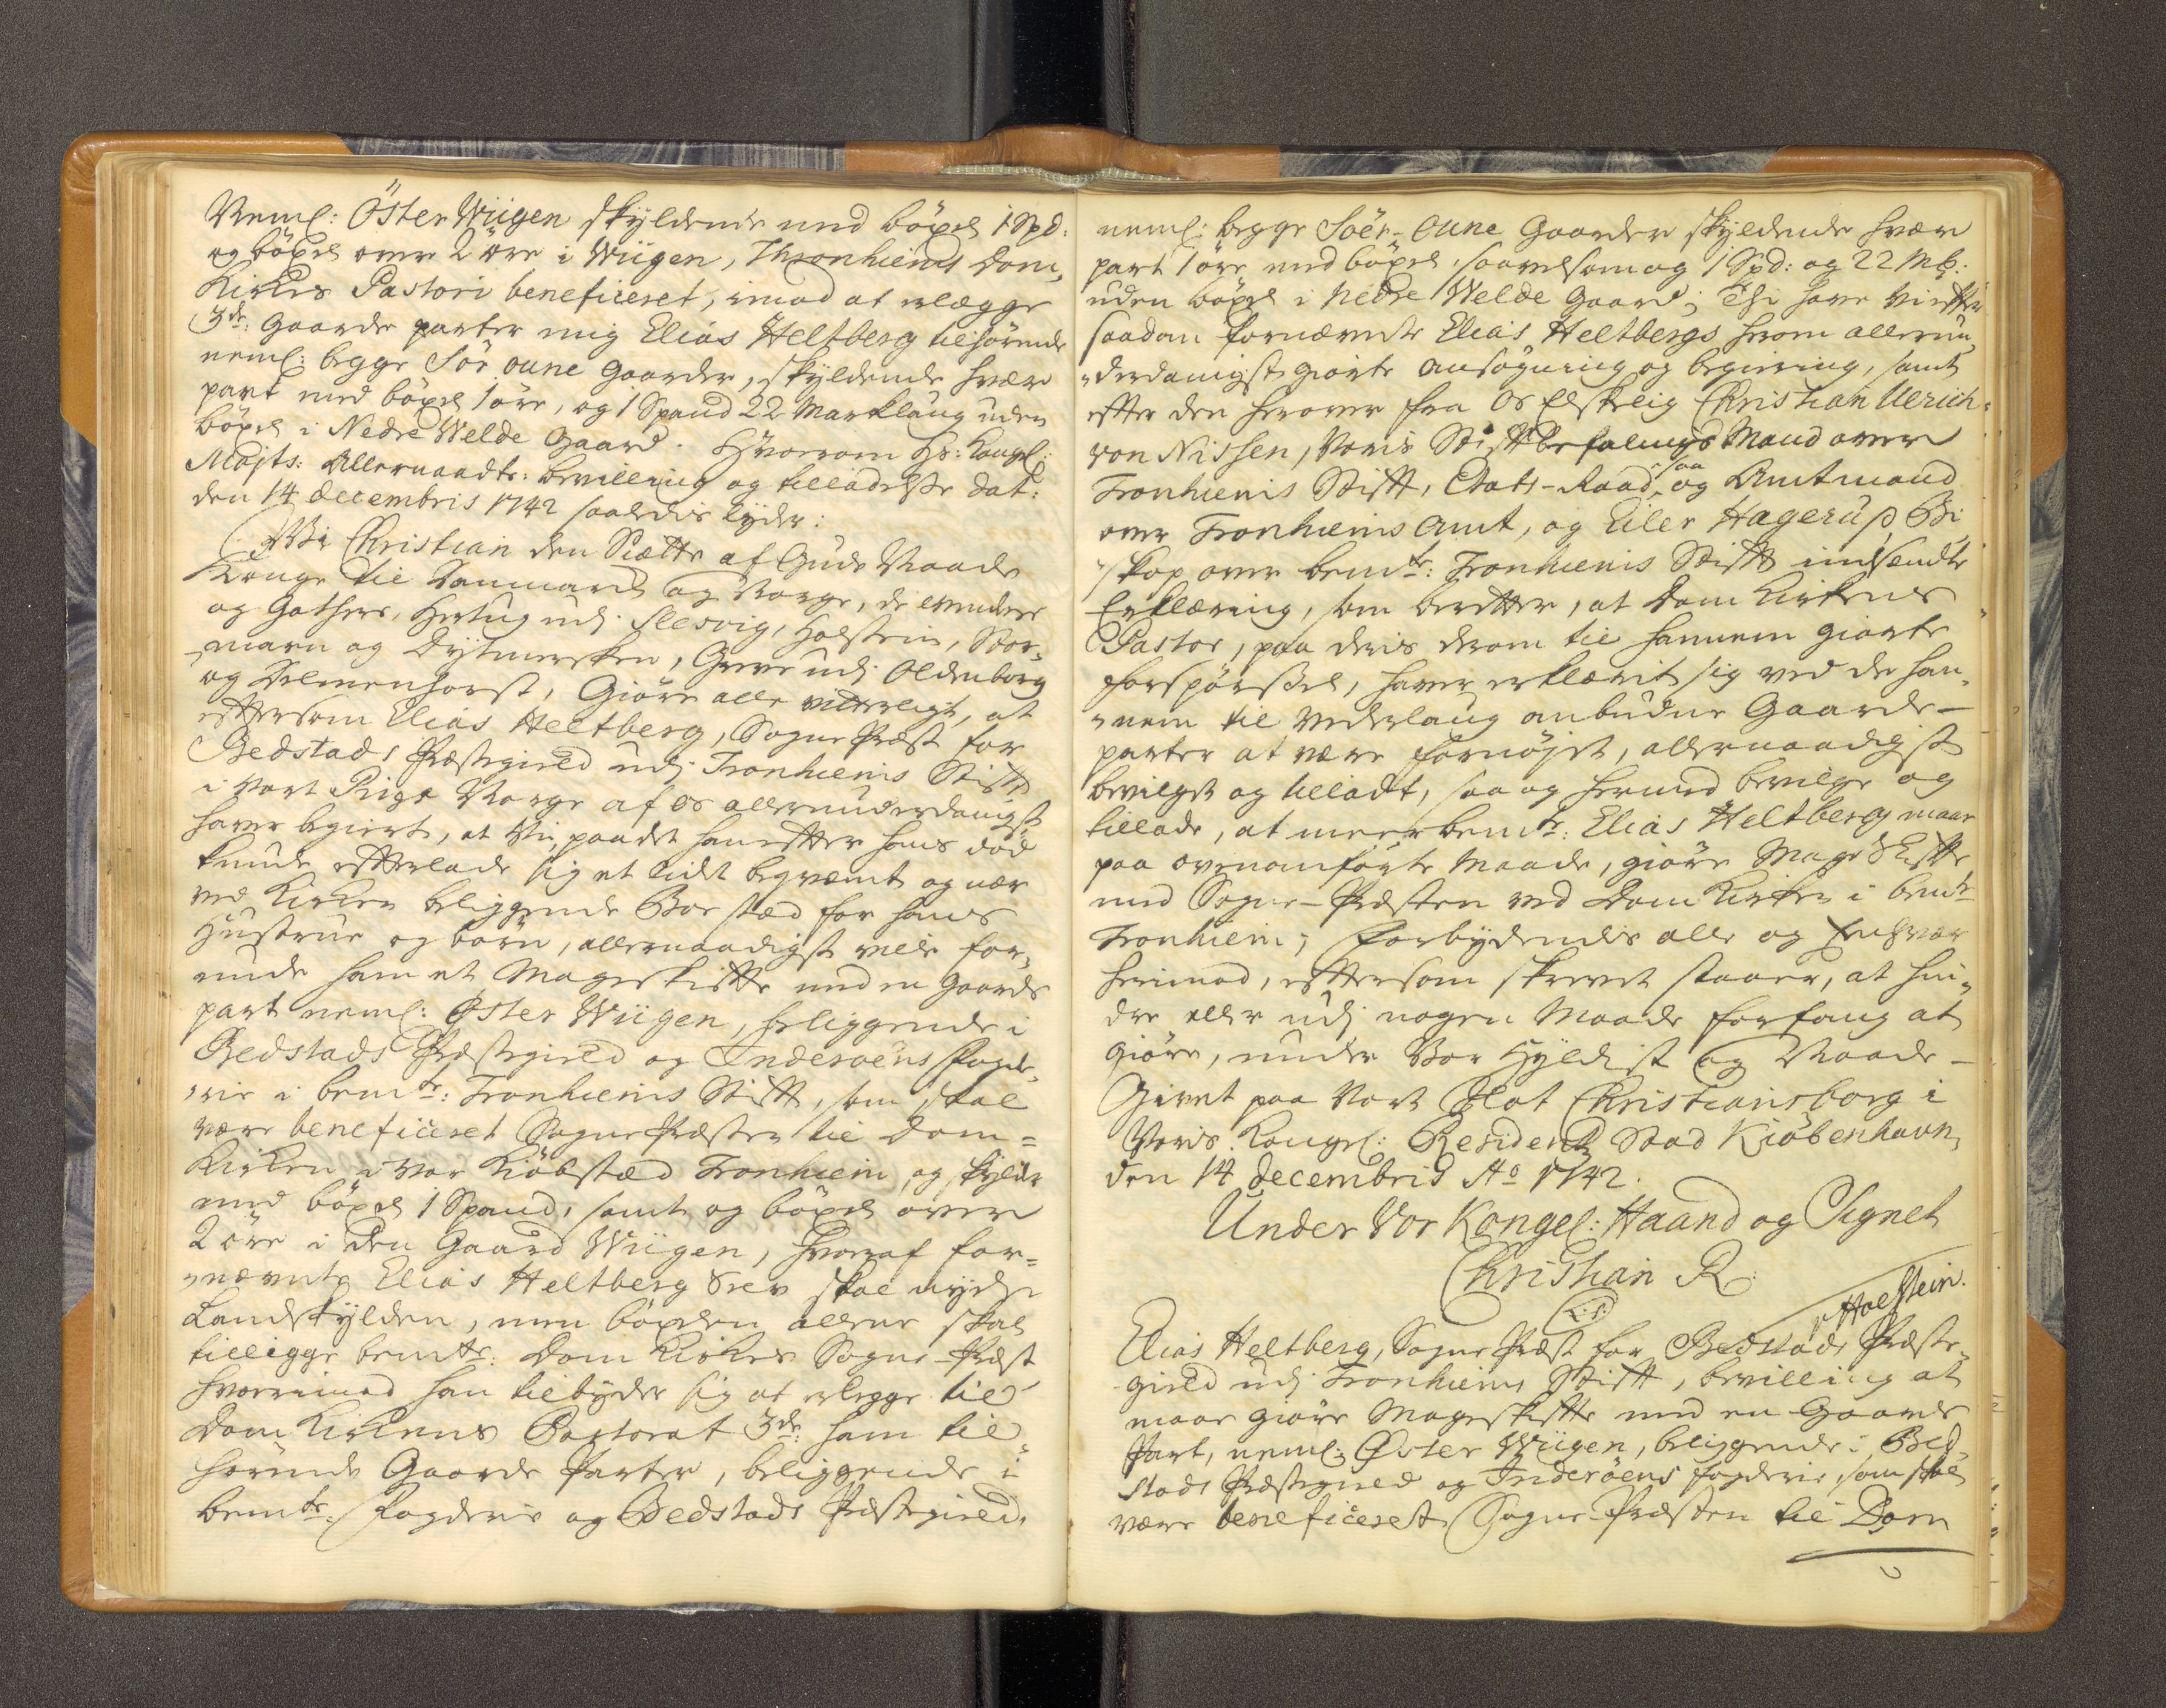 Neml: Öster Wiigen skyldende med böxel 1 Spd:
og böxel over 2 öre i Wiigen, Thronhiems Dom
Kirkes Pastori beneficeret, imod at erlægge
3de: Gaarde parter mig Elias Heltberg tilhörende
neml: begge Sör oune Gaarder, skyldende hver
part med böxel 1 öre, og 1 Spand 22 Marklaug uden
böxel i Nedre Welde Gaard. Hvorom Hs: Kongl:
Majts: Allernaadte: bevilling og tilladelse dat:
den 14 decembris 1742 saaledes lyder:
Wi Christian den Siette af Guds Naade
Konge til Danmark og Norge, de Venders
og Gothers, Hertug udj Slesvig, Holsteen, Stor-
marn og Dytmersken, Greve udj Oldenborg
og Delmenhorst, Giöre alle vitterligt, at
eftersom Elias Heltberg, Sogne Præst for
Bedstads Præstegield udj Tronhiems Stift
i Vort Rige Norge af Os allerunderdanigst
haver begiert, at Vi, paa det hand efter hans död
kunde efterlade sig et lidt beqvemt og nær
ved Kirken beliggende Boe stæd for hans
Hustrue og börn, allernaadigst ville for-
unde ham et Mageskifte med en Gaarde
part neml: Öster Wiigen, beliggende i
Bedstads Præstegield og Inderöens Fogde-
rie i bemte: Tronhiems Stift, som skal
være beneficeret Sogne Præsten til Dom-
Kirken i Vor Kiöbstæd Tronhiem, og skylder
med böxel 1 Spand, samt og böxel over
2 öre i den Gaard Wiigen, hvoraf for-
nævnte Elias Heltberg selv skal nyde
Landskylden, men böxelen allene skal
tilligge bemte: Dom Kirkes Sogne-Præst
hvorimod han tilbyder sig at erlegge til
Dom Kirkens Pastorat 3de: ham til
hörende Gaarde Parter, beliggende i
bemte: Fogderie og Bedstads Præstegield,
neml: begge Söer-Oune Gaarder skyldende hver
part 1 öre med böxel, saavelsom og 1 Spd: og 22 Mk:
uden böxel i Nedre Welde Gaard; Thi have Vi efter
saadan fornævnte Elias Heltbergs herom allerun-
derdanigst giorte ansögning og begiering, samt
efter den herover fra Os Elskelig Christian Ulrich
von Nissen, Voris Stiftbefalings Mand over
Tronhiems Stift, Etats-Raad, saa og Amtmand
over Tronhiems Amt, og Eiler Hagerup, Bi-
skop over bemte: Tronhiems Stift indsendte
Erklæring, som beretter, at Dom Kirkens
Pastor, paa deris derom til hannem giorte
forspörsel, haver erklærit sig ved de han-
nem til vederlaug anbudne Gaarde-
parter at være fornöjet, allernaadigst
bevilget og tilladt, saa og hermed bevilge og
tillade, at meerbemte: Elias Heltberg maae
paa ovenanförte Maade, giöre Mageskifte
med Sogne-Præsten ved Dom Kirken i bemte
Tronhiem; Forbydendis alle og Enhver
herimod, eftersom skrevet staaer, at hin-
dre eller udj nogen Maade forfang at
giöre, under Vor Hyldest og Naade-
Givet paa Vort Slot Christiansborg i
Voris Kongel: Residentz Stad Kiöbenhavn,
den 14 decembris Ao 1742.
Under Vor Kongel: Haand og Signet
Christian R.
L:S:
v Holstein.
Elias Heltberg, Sogne Præst for Bedstads Præste-
gield udj Tronhiems Stift, bevilling at
maae giöre Mageskifte med en Gaards
Part, neml: Øster Wiigen, beliggende i Bed-
stads Præstegield og Inderöens fogderie, som skal
være beneficeret Sogne-Præsten til Dom